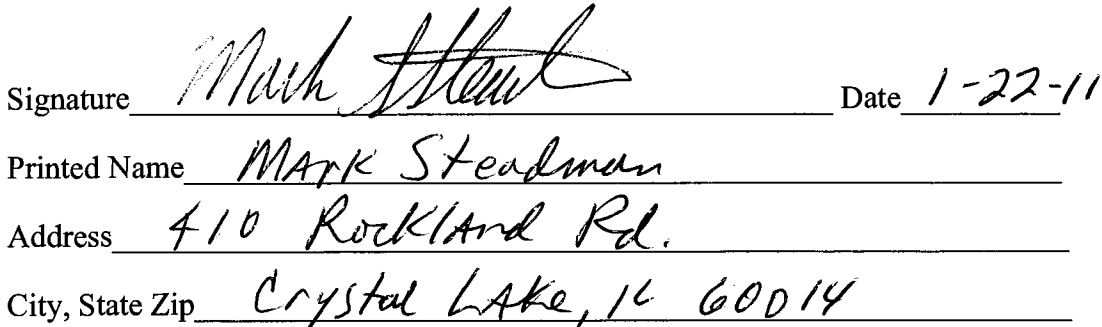 Signature Mark Stead Date 1-22-11
Printed Name Mark Steadman
Address 410 Rockland Rd.
City, State Zip Crystal Lake, IL 60014